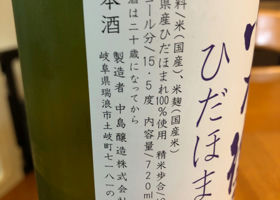 ひだほま
料/米(国産)、米麹(国産米)
県産ひだほまれ100%使用 精米歩合/
ール分/15.5度 内容量/720ml
酒は二十歳になってから
本酒
製造者 中島醸造株式会
岐阜県瑞浪市土岐町七一八一の